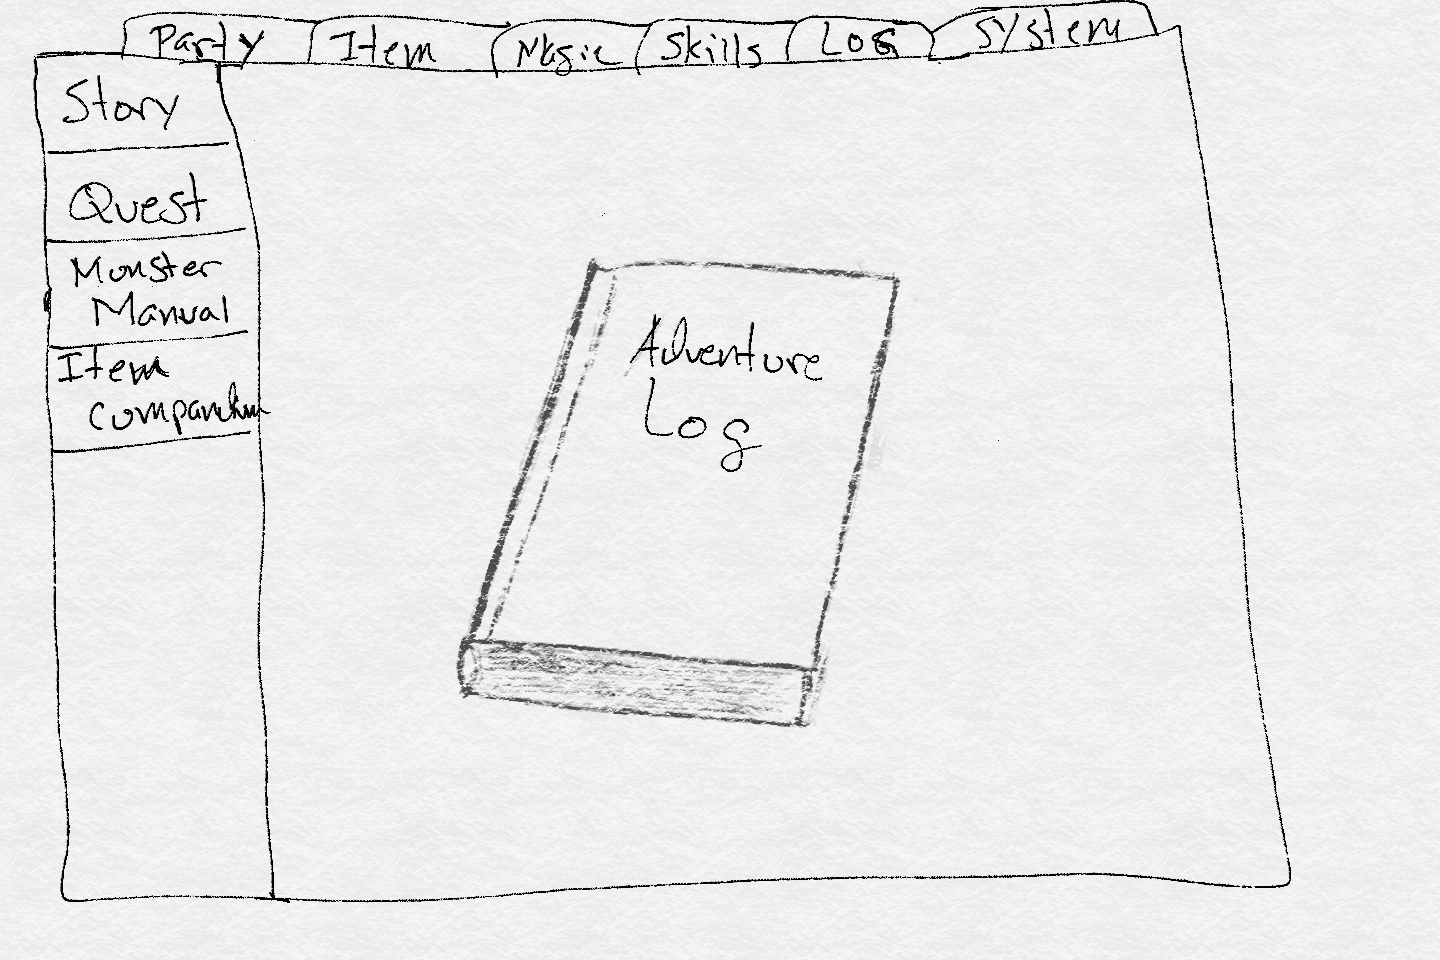 Party Item Magic Skills Log System
Story
Quest
Monster
Manual
Item
Compandium
Adventure
Log